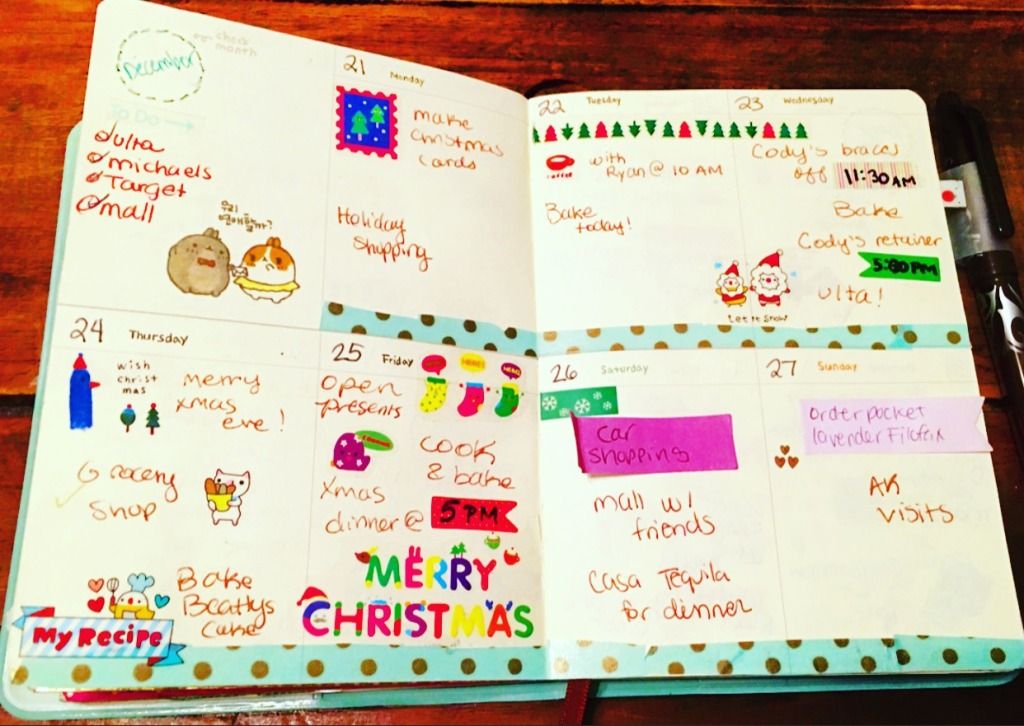 December
check
month
To Do →
Ulta
michaels
Target
mall
우리
연애할까?
21 Monday
make
christmas
cards
Holiday
shopping
22 Tuesday
with
Ryan @ 10 AM
Bake
today!
23 Wednesday
Cody's braces
off 11:30 AM
Bake
Cody's retainer
5:00 PM
ulta!
Let it snow
24 Thursday
wish
christ
mas
merry
xmas
eve!
Grocery
Shop
Bake
Beattys
cake
My Recipe
25 Friday
open
presents
HERE!
HERE!
cook
& bake
xmas
dinner @ 5 PM
MERRY
CHRISTMAS
26 Saturday
car
shopping
mall w/
friends
Casa Tequila
for dinner
27 Sunday
order pocket
lavender Filofax
AK
visits